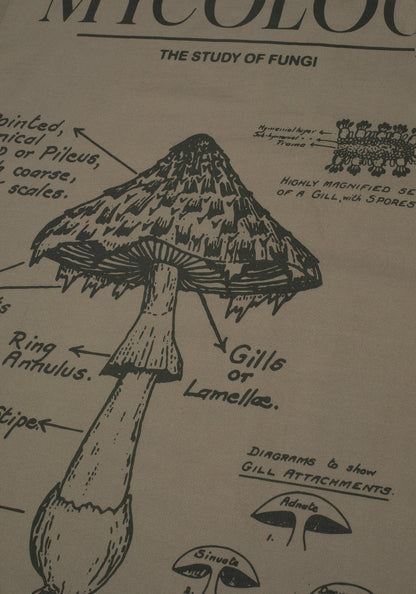 MYCOLO
THE STUDY OF FUNGI
ointed,
nical
or Pileus,
coarse,
scales.
Hymenial layer
Sub-hymenial
Trama
HIGHLY MAGNIFIED SE
OF A GILL, with SPORES
Ring
Annulus.
Gills
or
Lamellæ.
Stipe
DIAGRAMS to show
GILL ATTACHMENTS.
Adnate
1.
Sinuate
2.